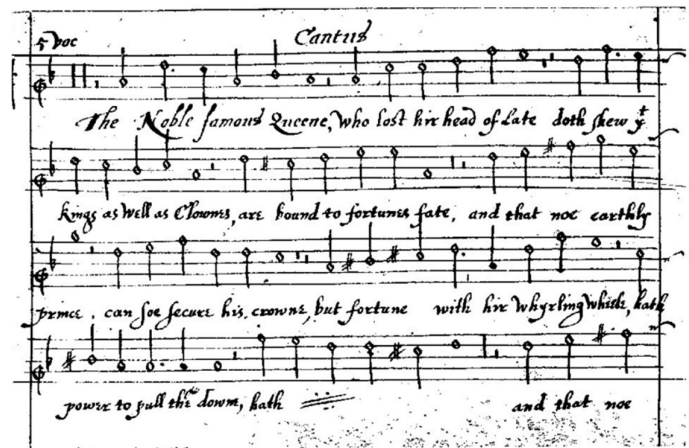 5 voc Cantus
The Noble famous Queene, who lost hir head of late doth shew yt
kings as well as Clownes, are bound to fortunes fate, and that noe earthly
prince, can soe secure his crowne, but fortune with hir whyrling while, hath
power to pull them downe, hath and that noe